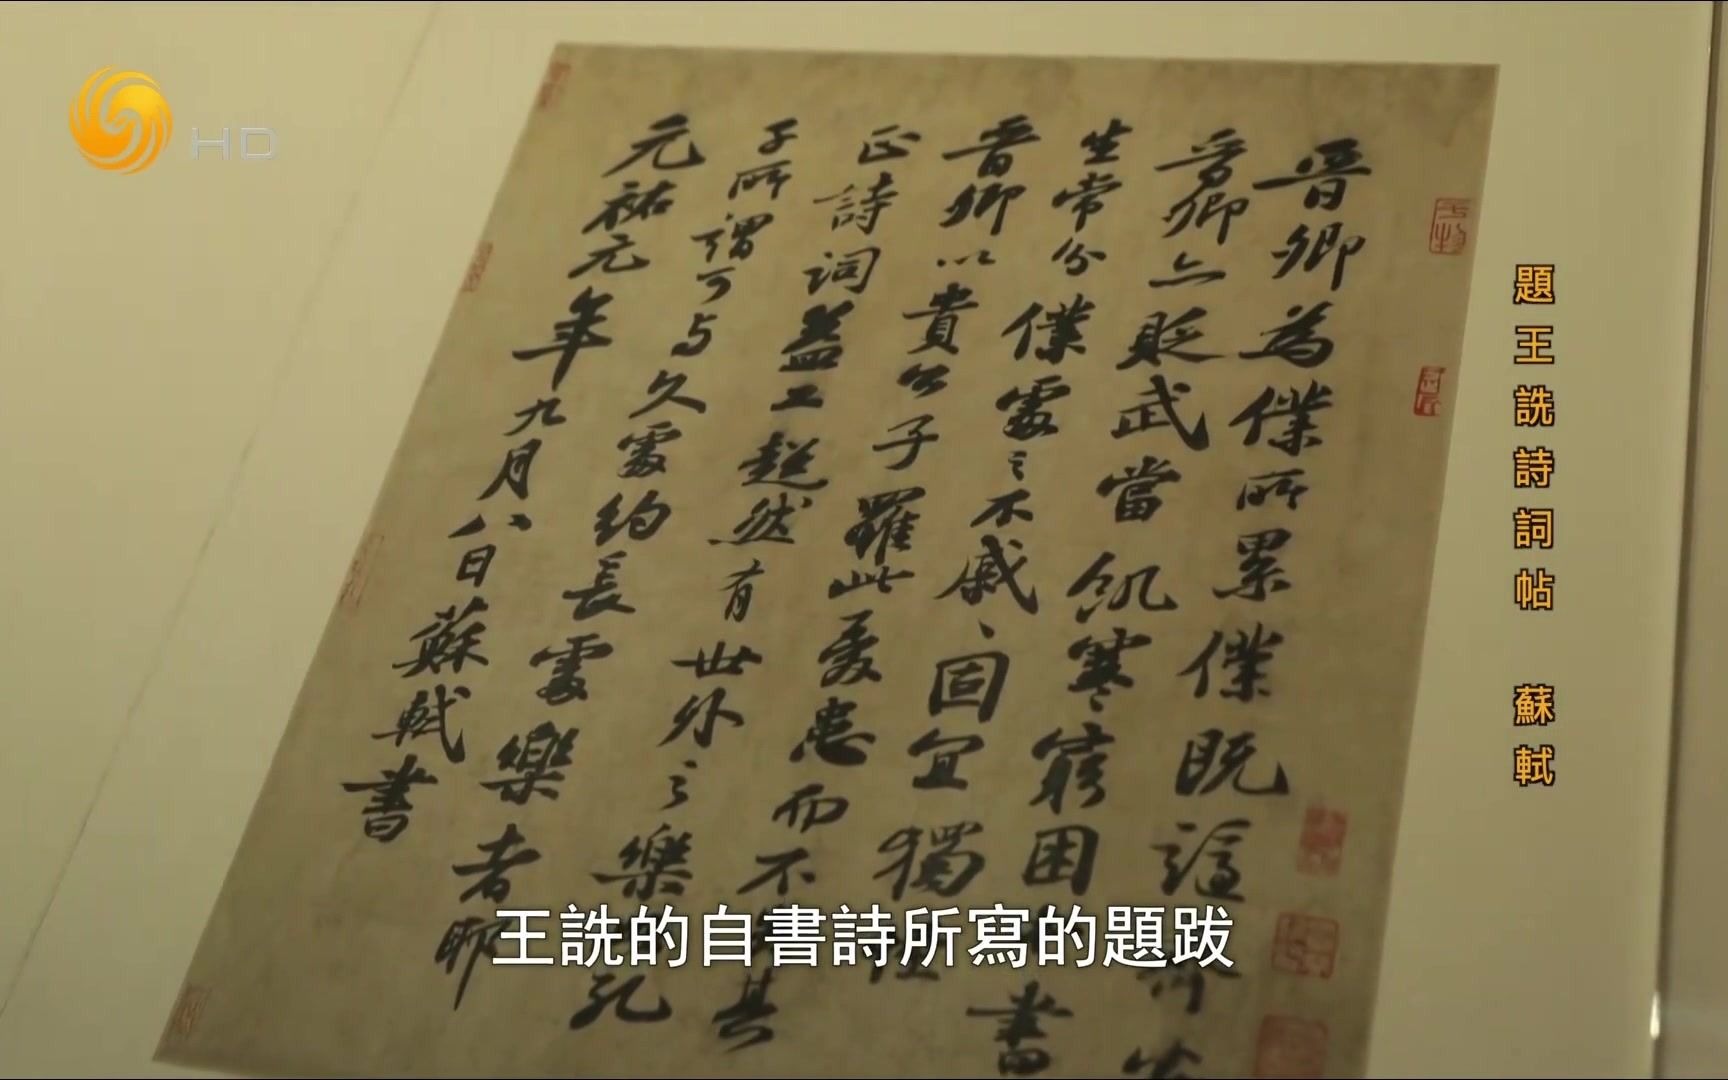 HD
晉卿為僕所累僕既謫
晉卿亦貶武當飢寒窮困書
生常分僕處之不戚、固宜獨
晉卿以貴公子罹此憂患而不其
正詩詞益工超然有世外之樂孔
子所謂可与久處約長處樂者耶
元祐元年九月八日蘇軾書
題王詵詩詞帖 蘇軾
王詵的自書詩所寫的題跋